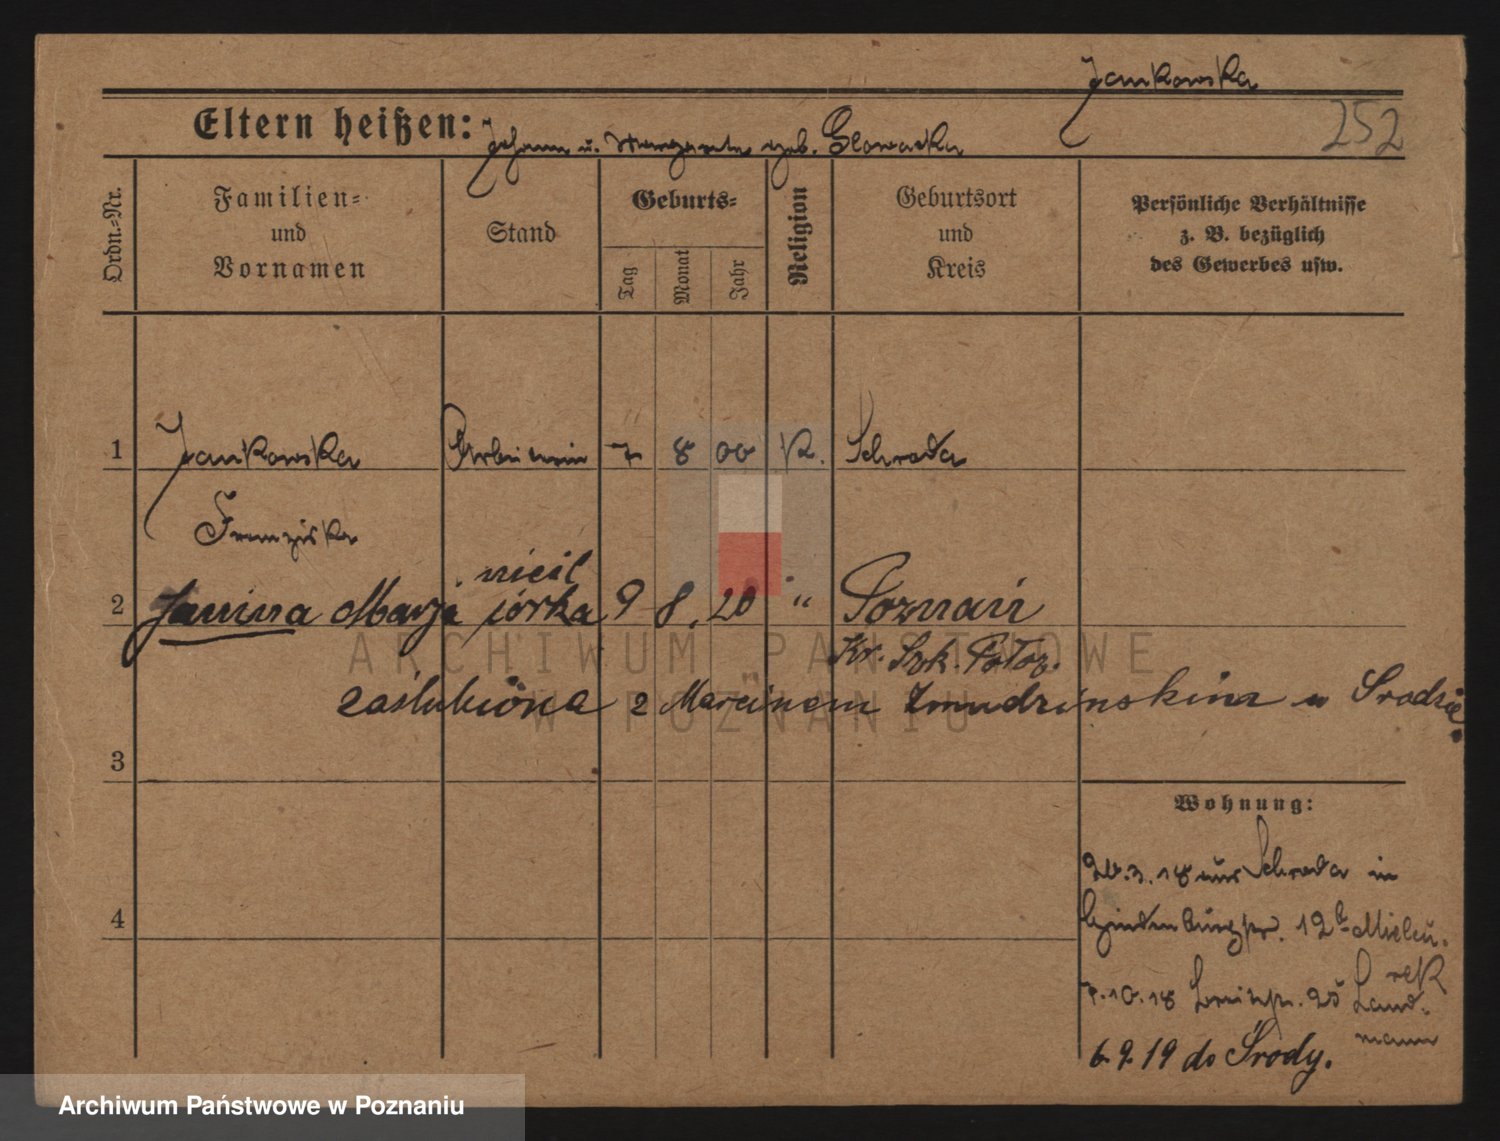 Jankowska
252
Eltern heißen: Johann u. Margarete geb. Glowacka
Ordn.-Nr.
Familien- und Vornamen
Stand
Geburts-
Tag
Monat
Jahr
Religion
Geburtsort und Kreis
Persönliche Verhältnisse
z. B. bezüglich
des Gewerbes usw.
1 Jankowska Arbeiterin 7 8 00 K. Schroda
Franziska
nieśl
2 Janina Marja córka 9 8. 20 " Poznań
Kr. Szk. Położ.
zaślubiona z Marcinem Żmudzińskim w Środzie.
3
Wohnung:
20.3.18 aus Schroda in
4
Hindenburgstr. 12 b. Mielcu.
rek
7.10.18 25 Land-
mann
6.9.19 do Środy.
ARCHIWUM PAŃSTWOWE
W POZNANIU
Archiwum Państwowe w Poznaniu